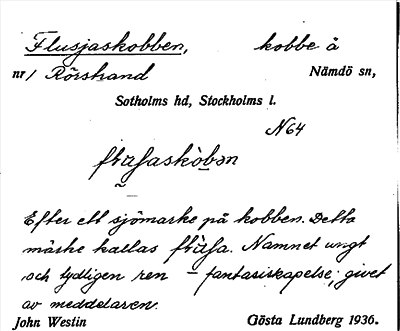 Flusjaskobben, kobbe å
nr/ Rörstrand Nämdö sn,
Sotholms hd, Stockholms l.
N64
Efter ett sjömärke på kobben. Detta
märke kallas Namnet ungt
och tydligen ren – fantasiskapelse, givet
av meddelaren.
John Westin Gösta Lundberg 1936.